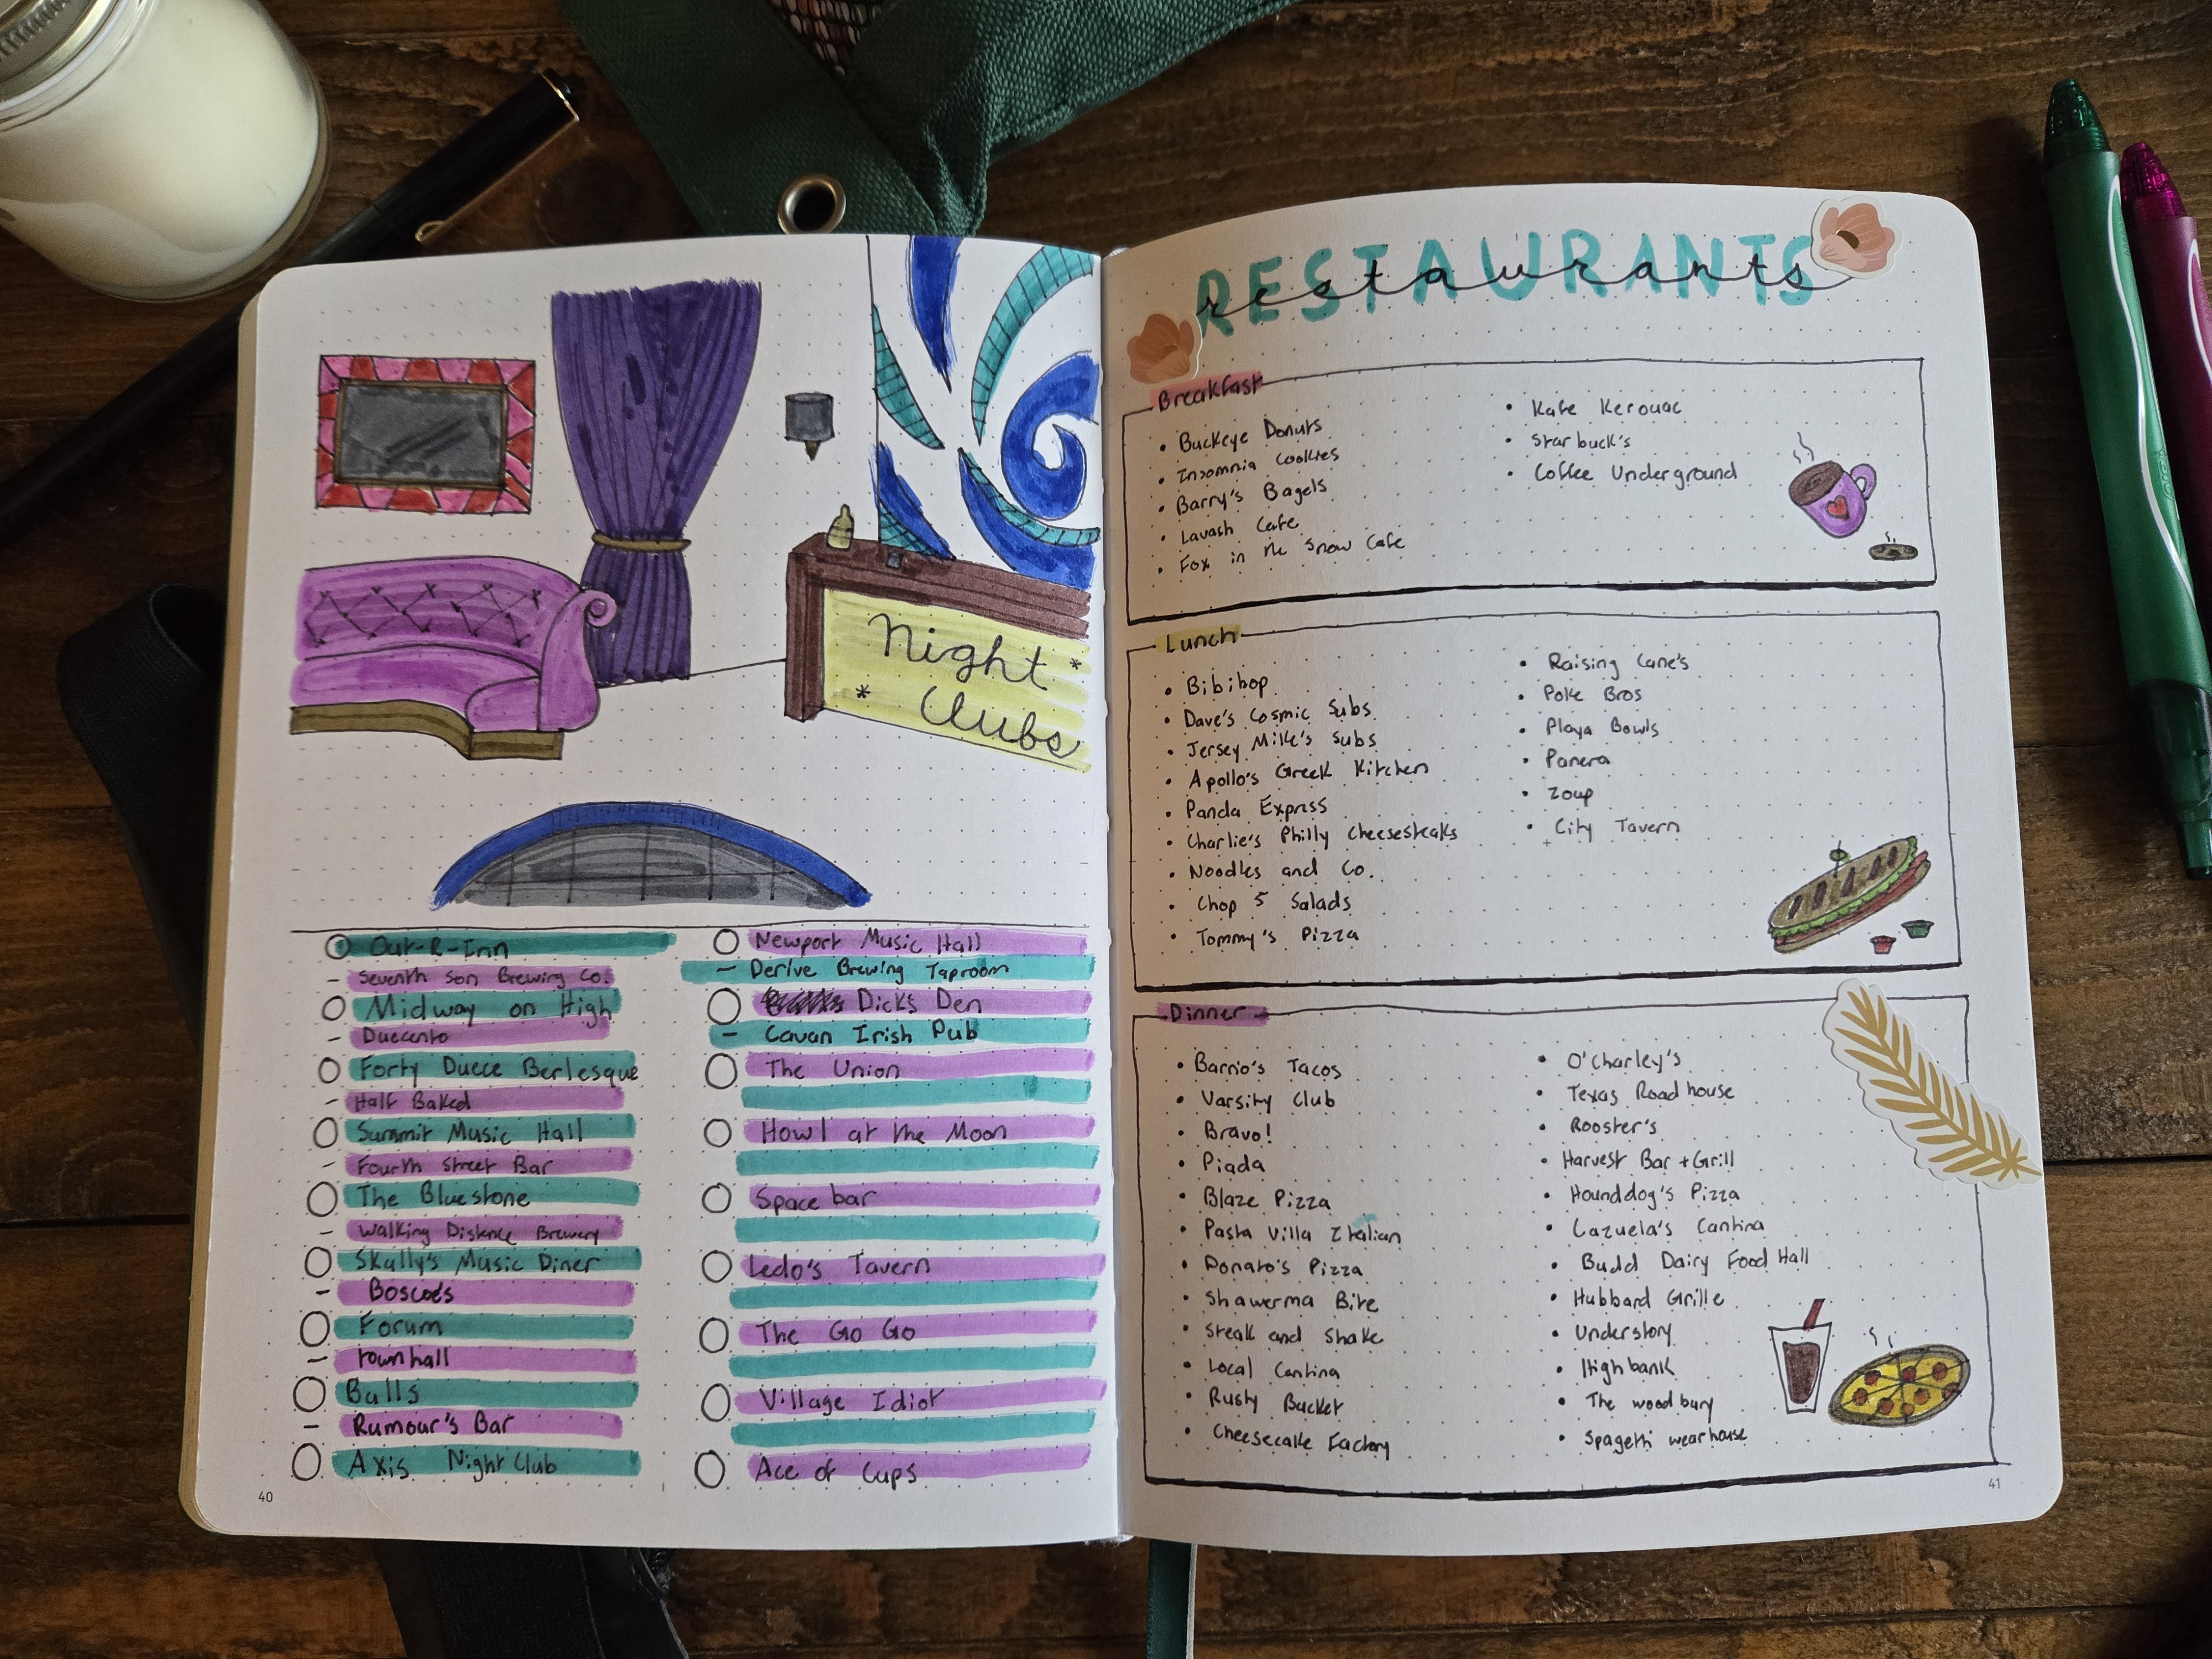 Night
Clubs
Out-R-Inn
- Seventh Son Brewing Co.
Midway on High
- Duecento
Forty Duece Berlesque
- Half Baked
Summit Music Hall
- Fourth Street Bar
The Bluestone
- Walking Distance Brewery
Skully's Music Diner
- Boscoe's
Forum
- townhall
Balls
- Rumour's Bar
Axis Night Club
Newport Music Hall
- Derive Brewing Taproom
Dicks Den
- Cavan Irish Pub
The Union
Howl at the Moon
Space bar
Ledo's Tavern
The Go Go
Village Idiot
Ace of Cups
40
RESTAURANTS
restaurants
Breakfast
• Buckeye Donuts
• Insomnia Cookies
• Barry's Bagels
• Lavash Cafe
• Fox in the Snow Cafe
• Kafe Kerouac
• Starbuck's
• Coffee Underground
Lunch
• Bibibop
• Dave's Cosmic Subs
• Jersey Mike's Subs
• Apollo's Greek Kitchen
• Panda Express
• Charlie's Philly Cheesesteaks
• Noodles and Co.
• Chop 5 Salads
• Tommy's Pizza
• Raising Cane's
• Poke Bros
• Playa Bowls
• Panera
• Zoup
• City Tavern
Dinner
• Barrio's Tacos
• Varsity Club
• Bravo!
• Piada
• Blaze Pizza
• Pasta Villa Italian
• Donato's Pizza
• Shawerma Bite
• Steak and Shake
• Local Cantina
• Rusty Bucket
• Cheesecake Factory
• O'Charley's
• Texas Road house
• Rooster's
• Harvest Bar + Grill
• Hounddog's Pizza
• Cazuela's Cantina
• Budd Dairy Food Hall
• Hubbard Grille
• Understory
• High bank
• The wood bury
• Spagetti wearhouse
41